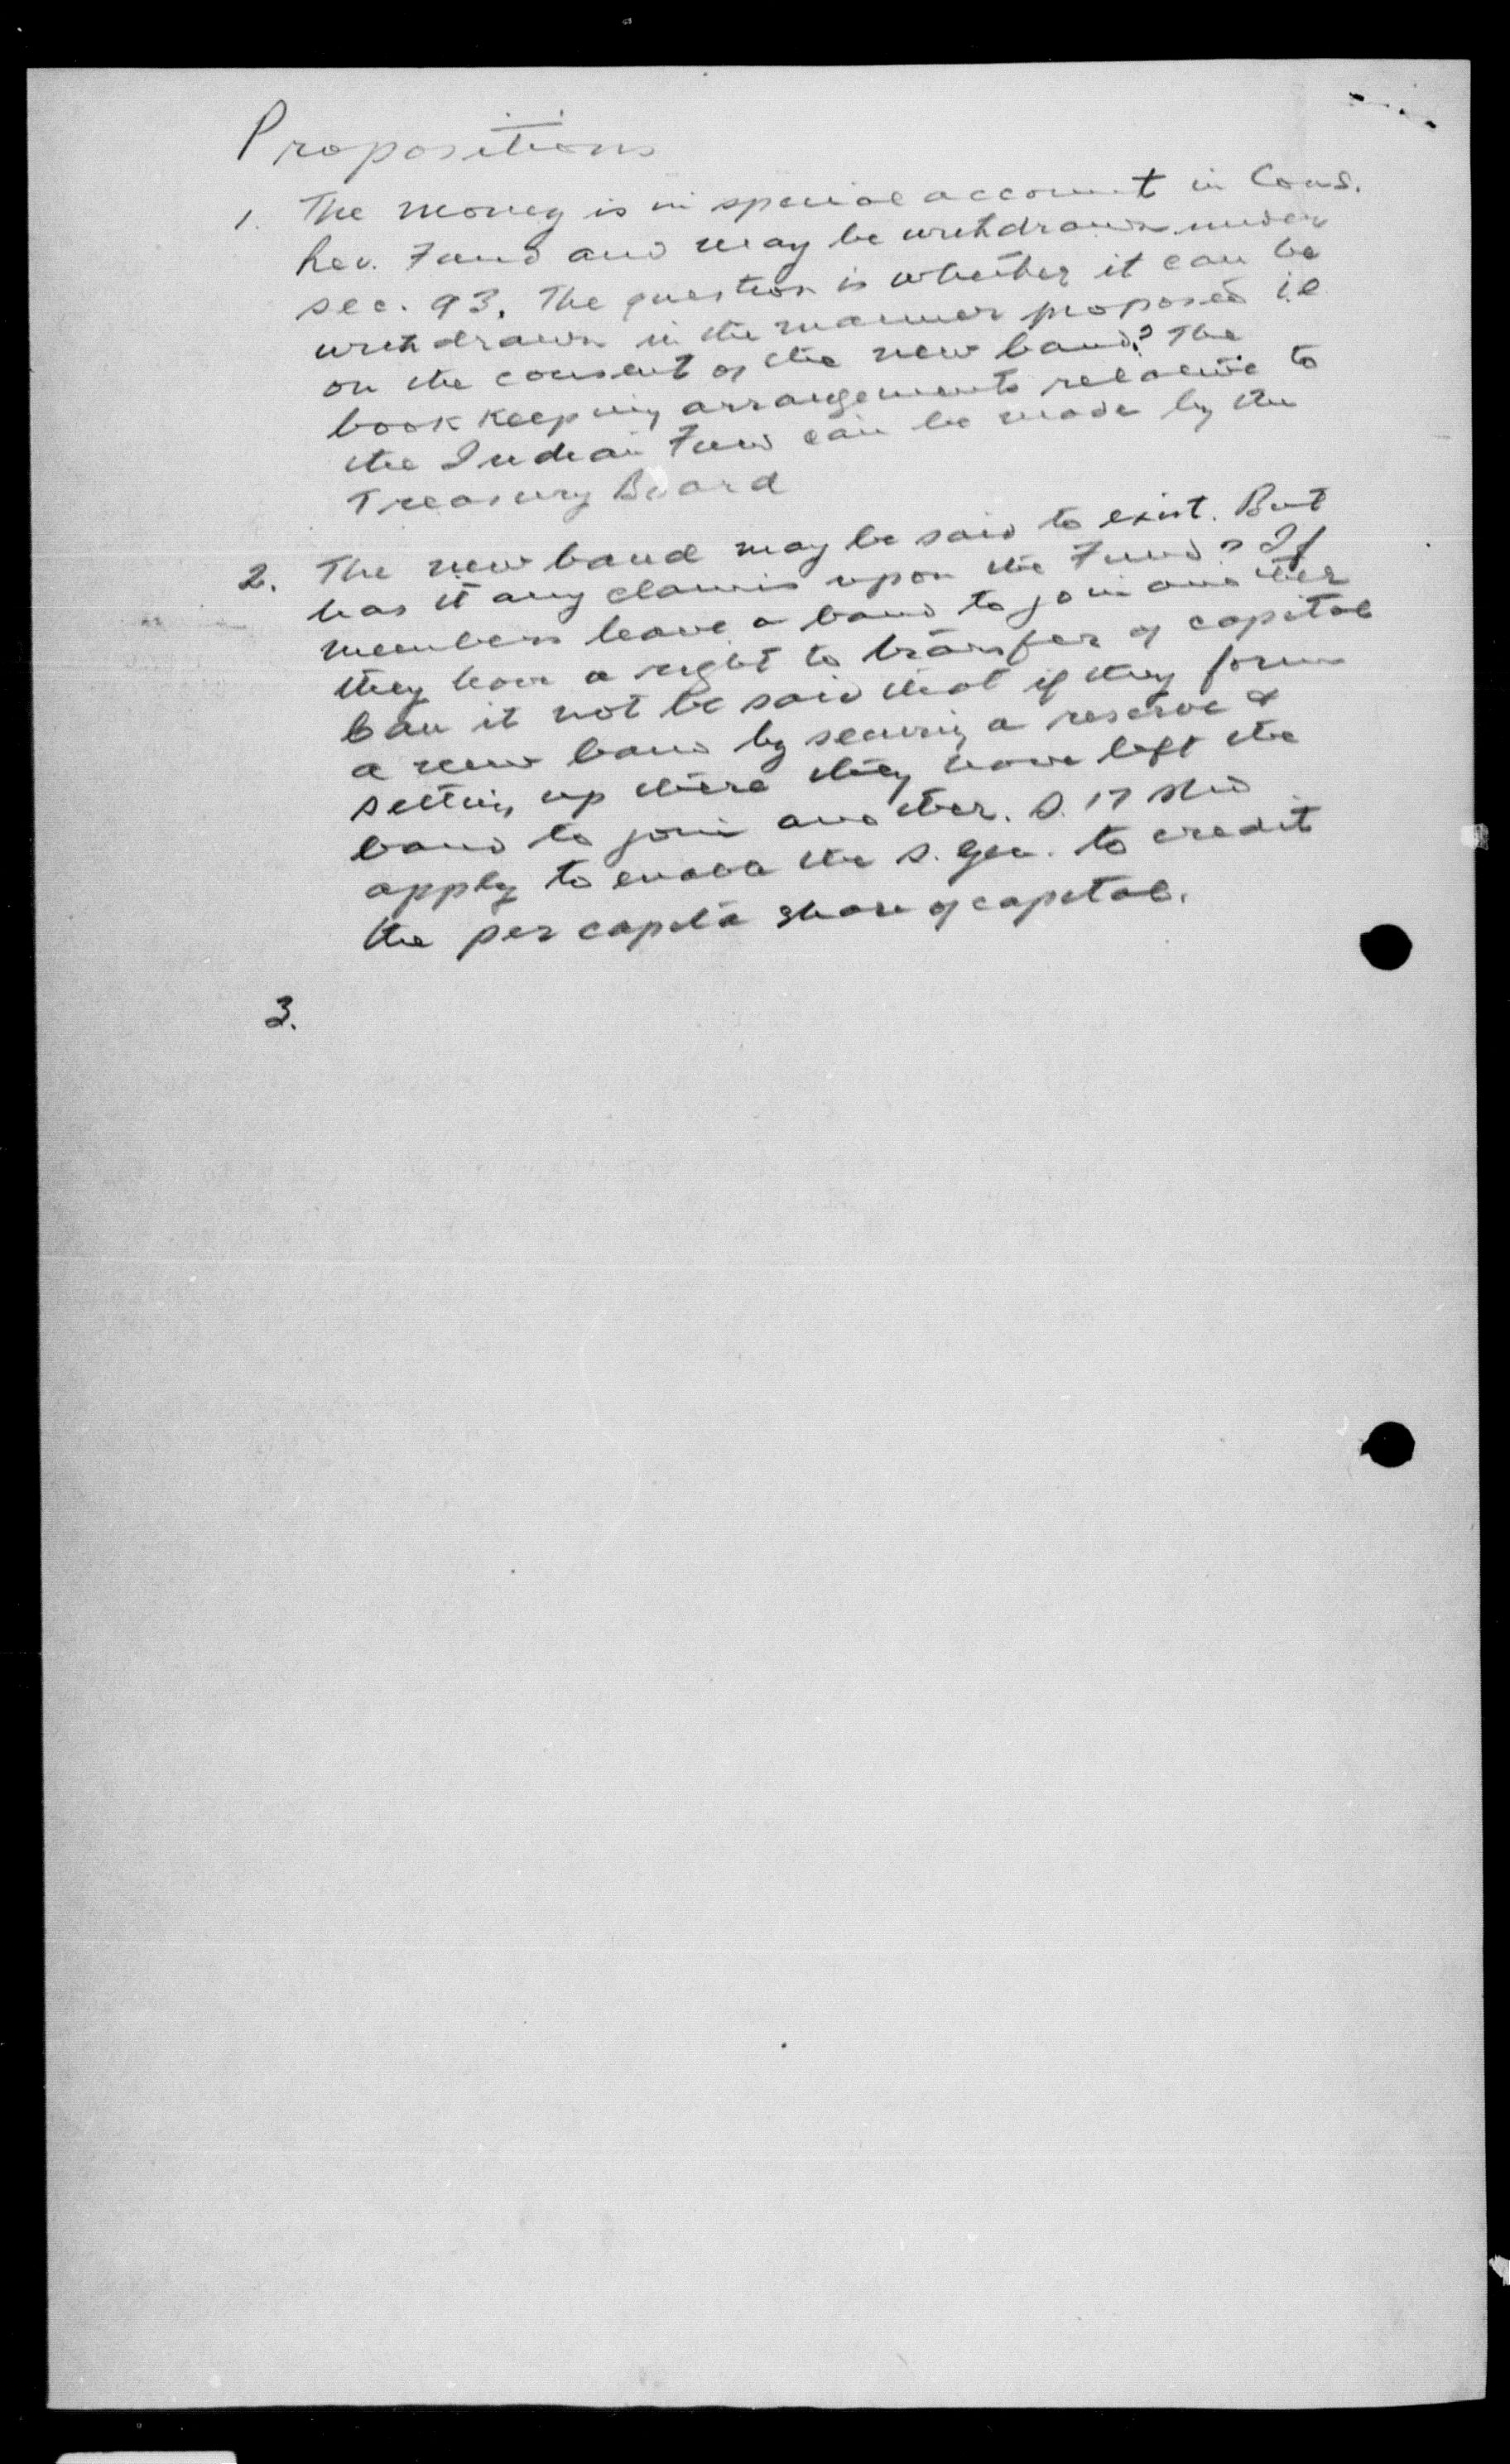 Propositions
1. The money is in special account in Cons.
Rev. Fund and may be withdrawn under
sec. 93. The question is whether it can be
withdrawn in the manner proposed i.e
on the consent of the new band? The
book keeping arrangements relative to
the Indian Fund can be made by the
Treasury Board
2. The new band may be said to exist. But
has it any claims upon the Fund? If
members leave a band to join another
they have a right to transfer of capital
Can it not be said that if they form
a new band by securing a reserve &
setting up there they have left the
band to join another. S. 17 shd
apply to enable the S. Gen. to credit
the per capita share of capital.
3.